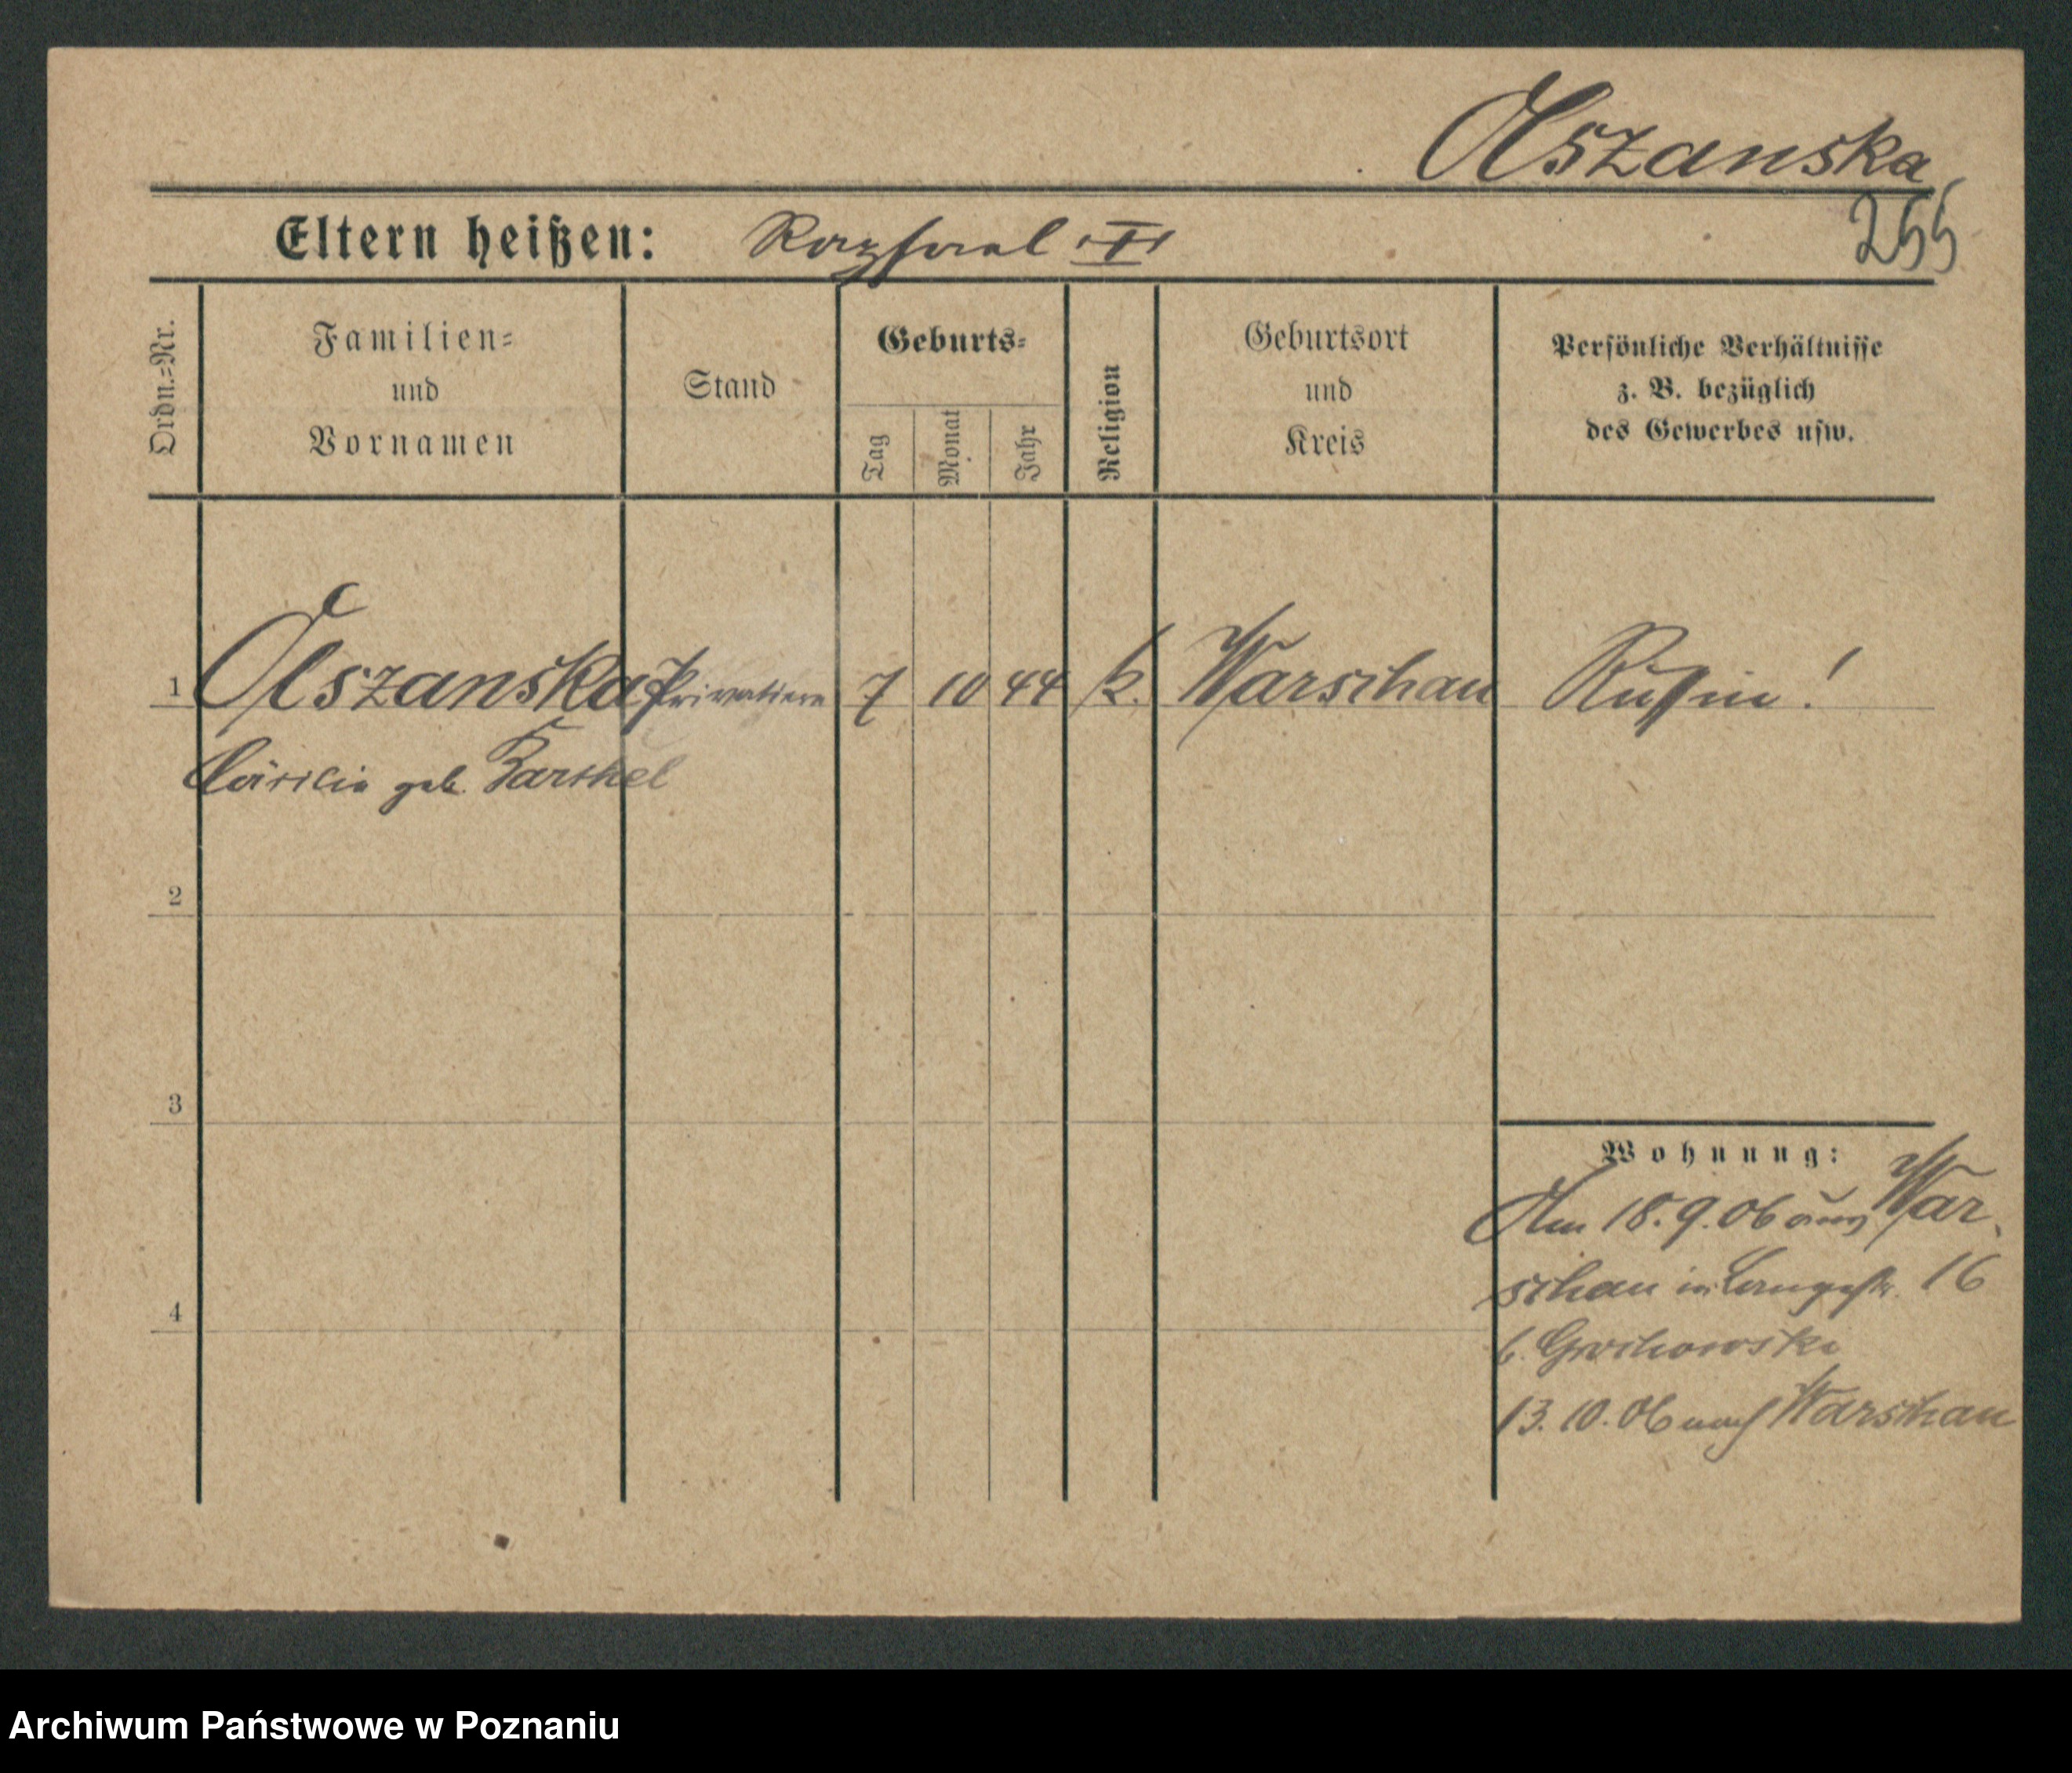 Olszanska
Eltern heißen:
255
Ordn.=Nr.
Familien=
und
Vornamen
Stand
Geburts=
Tag
Monat
Jahr
Religion
Geburtsort
und
Kreis
Persönliche Verhältnisse
z. B. bezüglich
des Gewerbes usw.
1 Olszanska Privatiere 7 10 44 k. Warschau Russin!
Cäcilia geb. Karskel
2
3
4
Wohnung:
Am 18.9.06 aus War-
schau in Langestr. 16
b. Grochowski
13.10.06 nach Warschau
Archiwum Państwowe w Poznaniu